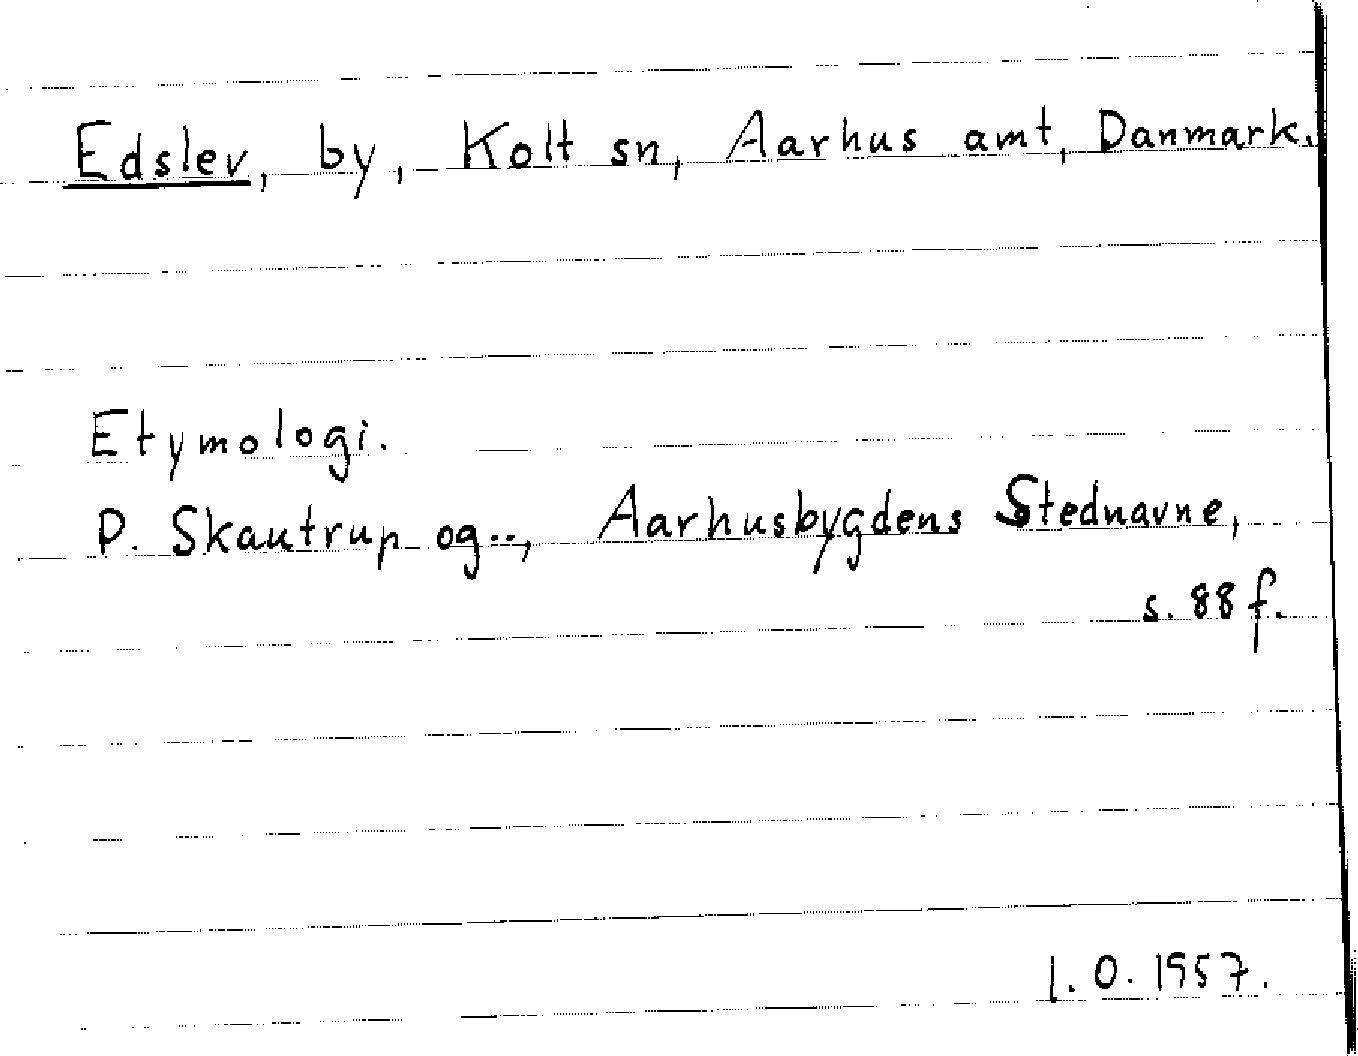 Edslev, by, Kolt sn, Aarhus amt, Danmark.
Etymologi.
P. Skautrup og.., Aarhusbygdens Stednavne,
s. 88 f.
I. O. 1957.